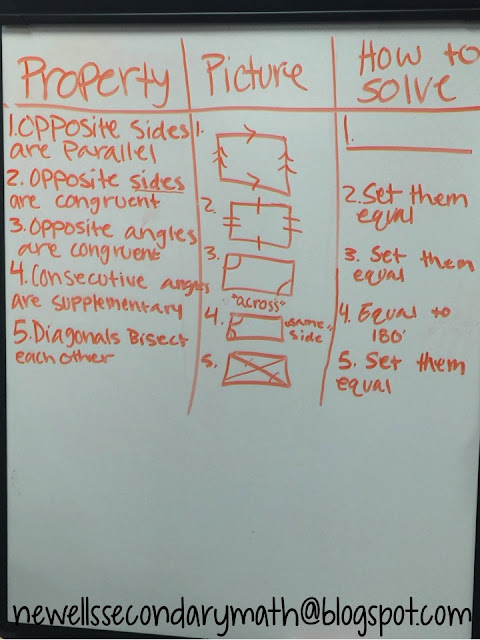 Property
Picture
How to
solve
1. Opposite sides
are Parallel
2. Opposite sides
are congruent
3. Opposite angles
are congruent
4. Consecutive angles
are supplementary
5. Diagonals Bisect
each other
1.
2.
3.
"across"
4.
"same-
side
5.
1.
2. Set them
equal
3. Set them
equal
4. Equal to
180°
5. Set them
equal
newellssecondarymath@blogspot.com